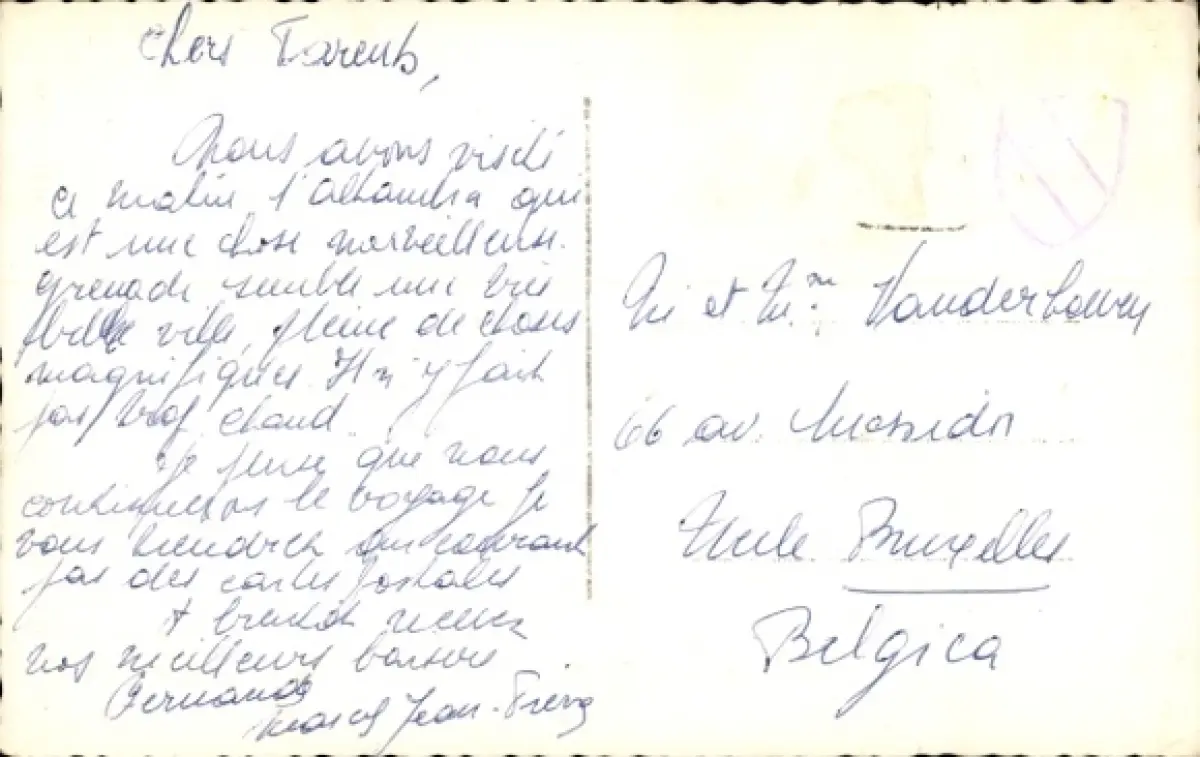 Chers Parents,
Nous avons visité
ce matin l'alhambra qui
est une chose merveilleuse.
Grenade semble une très
belle ville, pleine de choses
magnifiques. Il n'y fait
pas trop chaud
Je pense que nous
continuerons le voyage je
vous tiendrai au courant
par des cartes postales
nos meilleurs baisers
Fernande
Marcel Jean-Pierre
Mr et Mme
66 av. Messidor
Uccle Bruxelles
Belgica